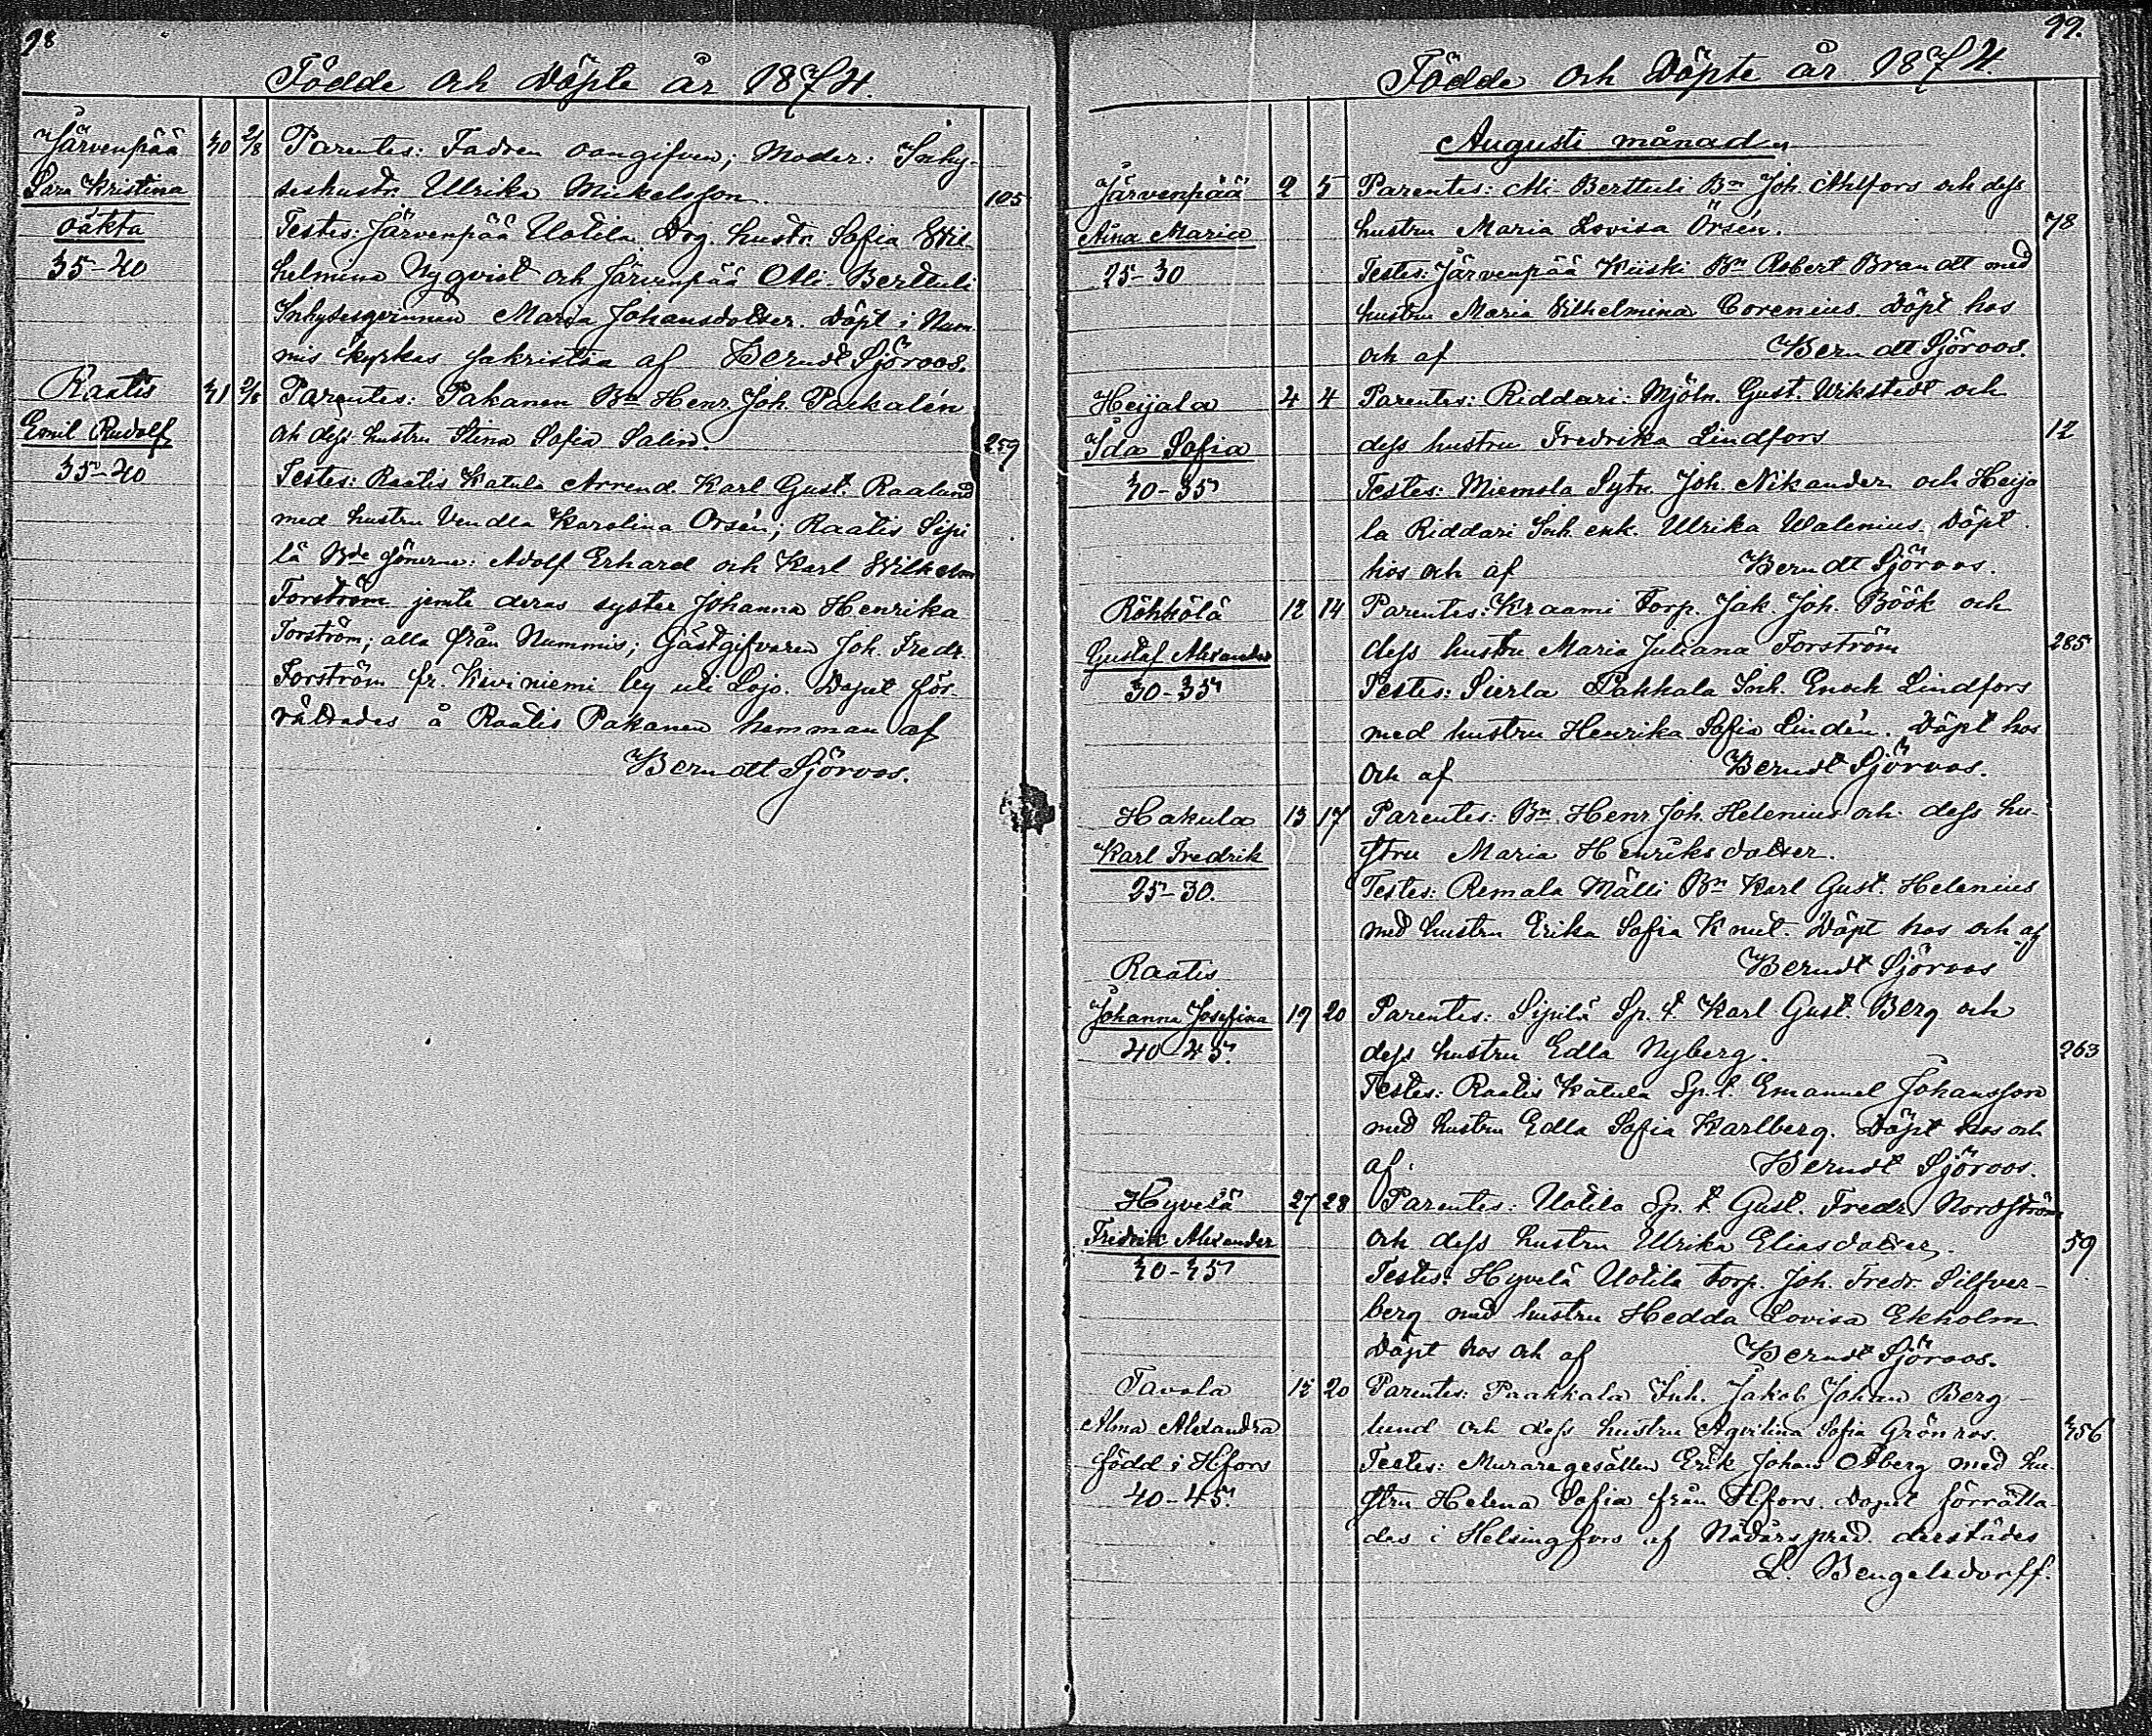 98
Födde och Döpte år 1874.
Järvenpää 30 2/8 Parentes: Fadren oangifven; Moder: Inhy-
Sara Kristina seshustr. Ulrika Mickelsson. 105
oäkta Testes: Järvenpää Uotila Drg. hustr. Sofia Wil-
35-40 helmina Nyqvist och Järvenpää Ali-Berttuli
Inhysesqvinnan Maria Johansdotter. Döpt i Num-
mis kyrkas sakristia af Berndt Sjöroos.
Raatis 31 2/8 Parentes: Pakanen Bn Henr. Joh. Packalén
Emil Rudolf och dess hustru Stina Sofia Salin. 259
35-40 Testes: Raatis Katula Arrend. Karl Gust. Raalund
med hustru Vendla Karolina Orsén; Raatis Sipi
lä Bde sönerne: Adolf Erhard och Karl Wilhelm
Forström jemte deras syster Johanna Henrika
Forström; alla från Nummis; Gästgifvaren Joh. Fredr.
Forström fr. Kiviniemi by uti Lojo. Dopet för-
rättades å Raatis Pakanen hemman af
Berndt Sjöroos.
99.
Födde och Döpte år 1874.
Augusti månad
Järvenpää 2 5 Parentes: Ali-Berttuli Bn Joh. Ahlfors och dess
Aina Maria hustru Maria Lovisa Örsén. 78
25-30 Testes: Järvenpää Kiiski Bn Robert Brandt med
hustru Maria Vilhelmina Corenius. Döpt hos
och af Berndt Sjöroos.
Heijala 2 4 Parentes: Riddari: Mjöln. Gust. Wikstedt och
Ida Sofia dess hustru Fredrika Lindfors 12
30-35 Testes: Miemola Sytn. Joh. Nikander och Heija
la Riddari Inh. enk. Ulrika Walenius. Döpt
hos och af Berndt Sjöroos.
Röhkölä 12 14 Parentes: Kraami Torp. Jak. Joh. Böök och
Gustaf Alexander dess hustru Maria Juliana Forström 285
30-35 Testes: Sierla Pakkala Inh. Enock Lindfors
med hustru Henrika Sofia Lindén. Döpt hos
och af Berndt Sjöroos.
Hakula 13 17 Parentes: Bn. Henr. Joh. Helenius och dess hu-
Karl Fredrik stru Maria Henriksdotter.
25-30. Testes: Remala Mälli Bn Karl Gust. Helenius
med hustru Erika Sofia Knut. Döpt hos och af
Raatis Berndt Sjöroos
Johanna Josefina 19 20 Parentes: Sipilä Sp. t. Karl Gust. Berg och
40-45. dess hustru Edla Nyberg. 263
Testes: Raatis Katula Sp. t. Emanuel Johansson
med hustru Edla Sofia Karlberg. Döpt hos och
af Berndt Sjöroos.
Hyvelä 27 28 Parentes: Uotila Sp. t Gust. Fredr. Nordström
Fridrik Alexander och dess hustru Ulrika Eliasdotter. 59
40-45 Testes: Hyvelä Uotila Torp. Joh. Fredr. Silfver-
berg med hustru Hedda Lovisa Ekholm
Döpt hos och af Berndt Sjöroos.
Tavola 12 20 Parentes: Paakkala Inh. Jakob Johan Berg-
Alma Alexandra lund och dess hustru Aqvilina Sofia Grönros. 356
född i Hfors Testes: Muraregesällen Erik Johan Åberg med hu-
40-45. stru Helena Sofia från Hfors. Dopet förrätta-
des i Helsingfors af Nådårspred. derstädes
L. Bengelsdorff.